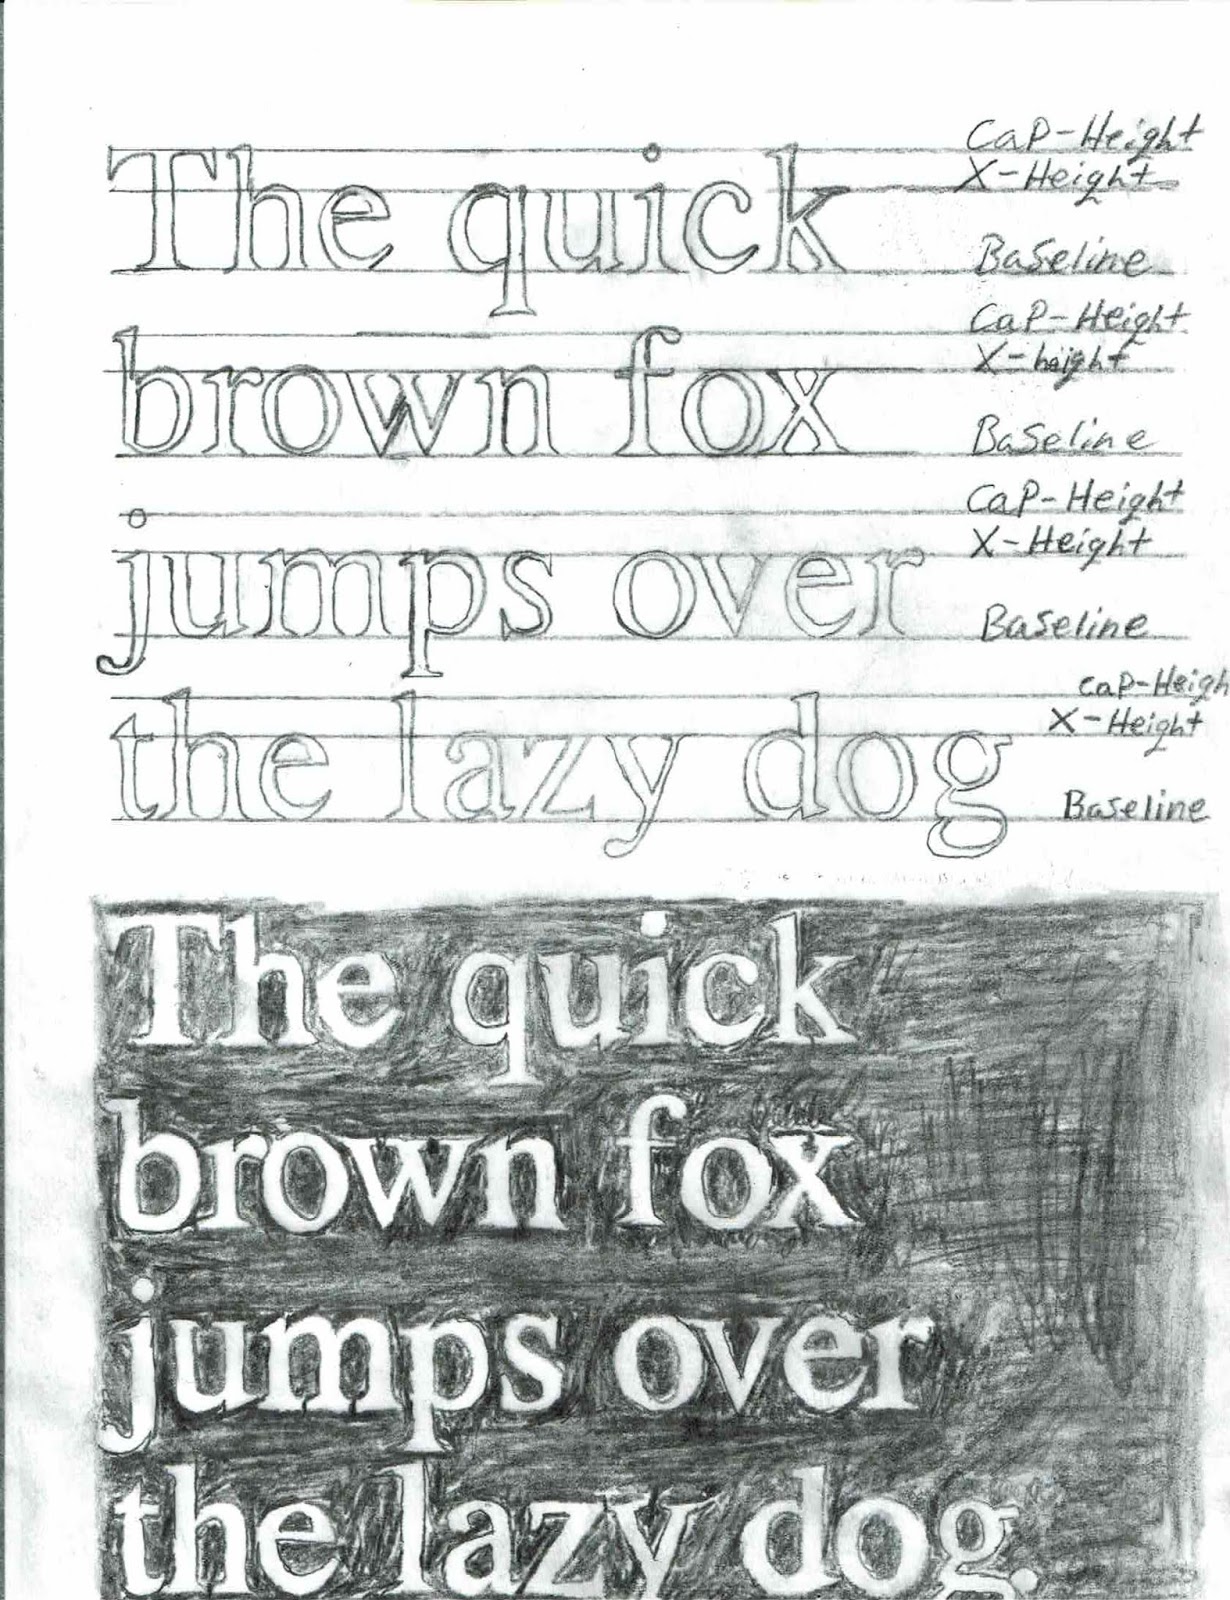 The quick
CaP-Height
X-Height
Baseline
brown fox
CaP-Height
X-height
Baseline
jumps over
CaP-Height
X-Height
Baseline
the lazy dog
CaP-Heigh
X-Height
Baseline
The quick
brown fox
jumps over
the lazy dog.